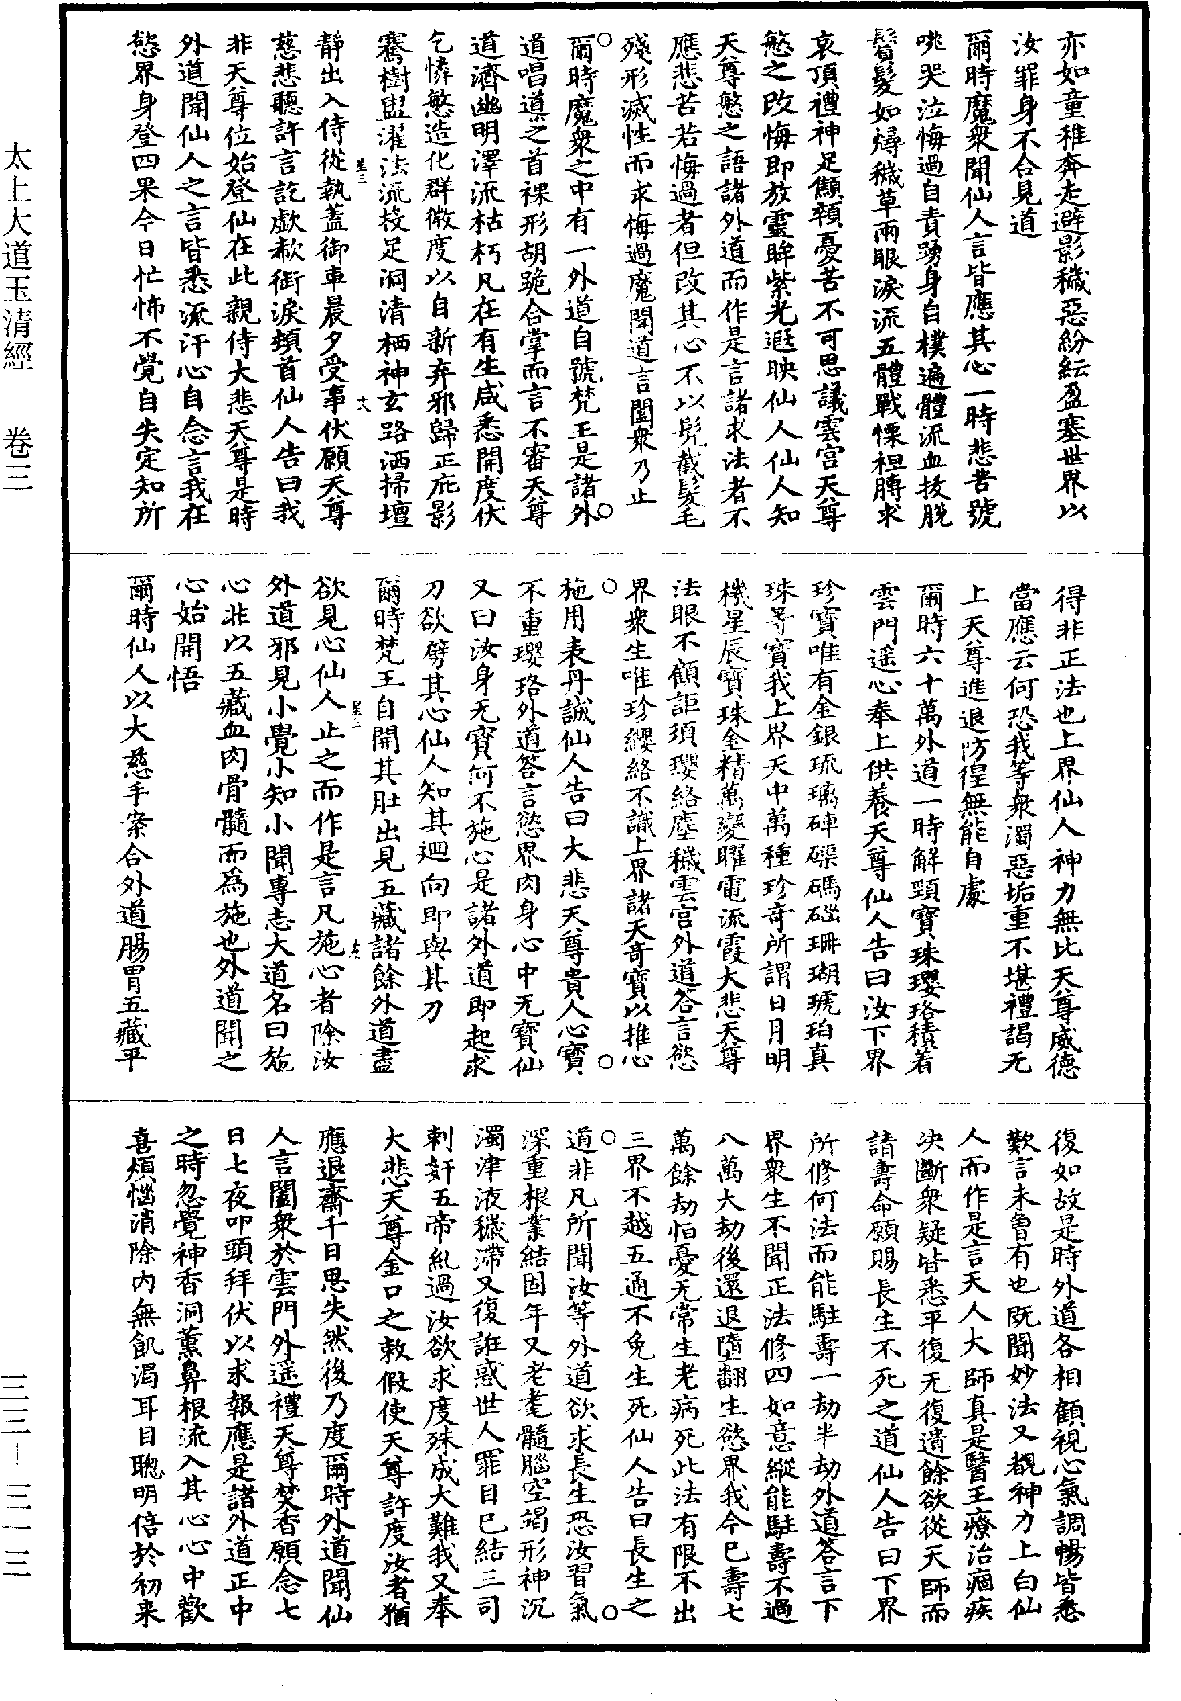 亦如童稚奔走避影穢惡紛紜盈塞世界以
汝罪身不合見道
爾時魔衆聞仙人言皆應其心一時悲苦號
咷哭泣悔過自責踴身自撲遍體流血拔脫
鬢髮如燖穢草兩眼淚流五體戰慄袒膊求
哀頂禮神足顦顇憂苦不可思議雲宮天尊
愍之改悔即放靈眸紫光遐映仙人仙人知
天尊愍之語諸外道而作是言諸求法者不
應悲苦若悔過者但改其心不以髡截髮毛
殘形滅性而求悔過魔聞道言闔衆乃止
爾時魔衆之中有一外道自號梵王是諸外
道唱導之首裸形胡跪合掌而言不審天尊
道濟幽明澤流枯朽凡在有生咸悉開度伏
乞憐愍造化群微度以自新弃邪歸正庇影
騫樹盥濯法流投足洞清栖神玄路洒掃壇
靜出入侍從執蓋御車晨夕受事伏願天尊
慈悲聽許言訖歔欷銜淚頰首仙人告曰我
非天尊位始登仙在此親侍大悲天尊是時
外道聞仙人之言皆悉流汗心自念言我在
慾界身登四果今日忙怖不覺自失定知所
得非正法也上界仙人神力無比天尊威德
當應云何恐我等衆濁惡垢重不堪禮謁无
上天尊進退防徨無能自處
爾時六十萬外道一時解頸寶珠瓔珞積着
雲門遥心奉上供養天尊仙人告曰汝下界
珍寶唯有金銀琉璃硨磲碼碯珊瑚琥珀真
珠等寶我上界天中萬種珍奇所謂日月明
機星辰寶珠金精萬變曜電流霞大悲天尊
法眼不顧詎須瓔絡塵穢雲宮外道答言慾
界衆生唯珍纓絡不識上界諸天奇寶以推心
施用表丹誠仙人告曰大悲天尊貴人心寶
不重瓔珞外道答言慾界肉身心中无寶仙
又曰汝身无寶何不施心是諸外道即起求
刀欲劈其心仙人知其迴向即與其刀
爾時梵王自開其肚出見五藏諸餘外道盡
欲見心仙人止之而作是言凡施心者除汝
外道邪見小覺小知小聞專志大道名曰施
心非以五藏血肉骨髓而為施也外道聞之
心始開悟
爾時仙人以大慈手案合外道腸胃五藏平
復如故是時外道各相顧視心氣調暢皆悉
歎言未曾有也既聞妙法又覩神力上白仙
人而作是言天人大師真是醫王療治痼疾
決斷衆疑皆悉平復无復遺餘欲從天師而
請壽命願賜長生不死之道仙人告曰下界
所修何法而能駐壽一劫半劫外道答言下
界衆生不聞正法修四如意縱能駐壽不過
八萬大劫後還退墮翻生慾界我今已壽七
萬餘劫怕憂无常生老病死此法有限不出
三界不越五通不免生死仙人告曰長生之
道非凡所聞汝等外道欲求長生恐汝習氣
深重根業結固年又老耄髓腦空竭形神沉
濁津液穢滯又復誑惑世人罪目已結三司
刺奸五帝糺過汝欲求度殊成大難我又奉
大悲天尊金口之敕假使天尊許度汝者猶
應退齋千日思失然後乃度爾時外道聞仙
人言闔衆於雲門外遥禮天尊焚香願念七
日七夜叩頭拜伏以求報應是諸外道正中
之時忽覺神香洞薰鼻根流入其心心中歡
喜煩惱消除內無飢渴耳目聰明倍於初來
太上大道玉清經 卷三
三三－三一三